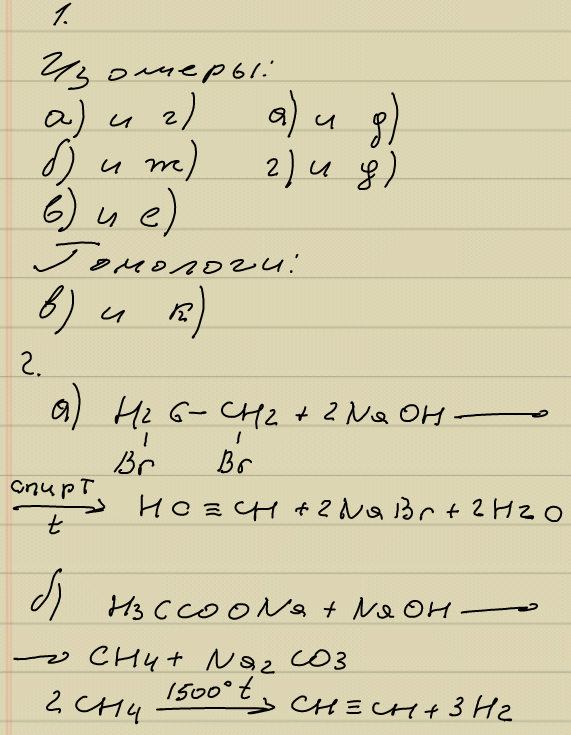 1.
Изомеры:
а) и г) а) и д)
б) и ж) г) и д)
в) и е)
Гомологи:
в) и к)
2.
а) H2C–CH2 + 2NaOH ⟶
Br Br
спирт
t
⟶ HC≡CH + 2NaBr + 2H2O
б) H3CCOONa + NaOH ⟶
⟶ CH4 + Na2CO3
2CH4 1500° t ⟶ CH≡CH + 3H2